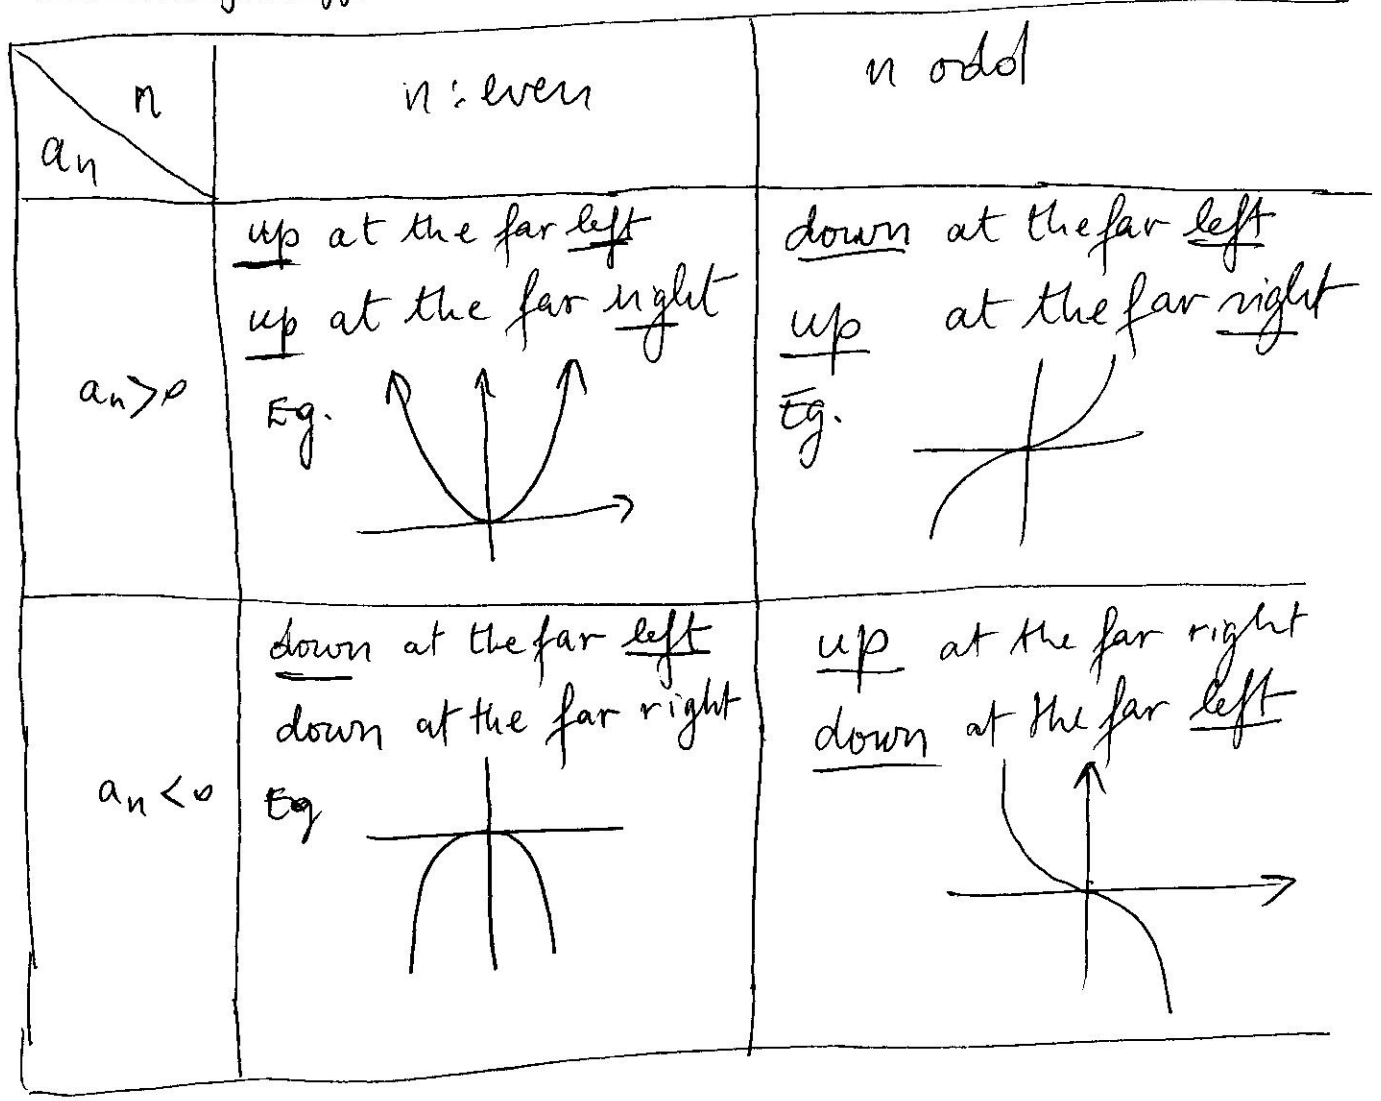 n
a_n
n : even
n odd
a_n > 0
up at the far left
up at the far right
Eg.
down at the far left
up at the far right
Eg.
a_n < 0
down at the far left
down at the far right
Eg
up at the far right
down at the far left